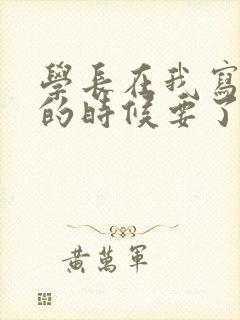 學長在我寫
的時候要了
黃萬軍